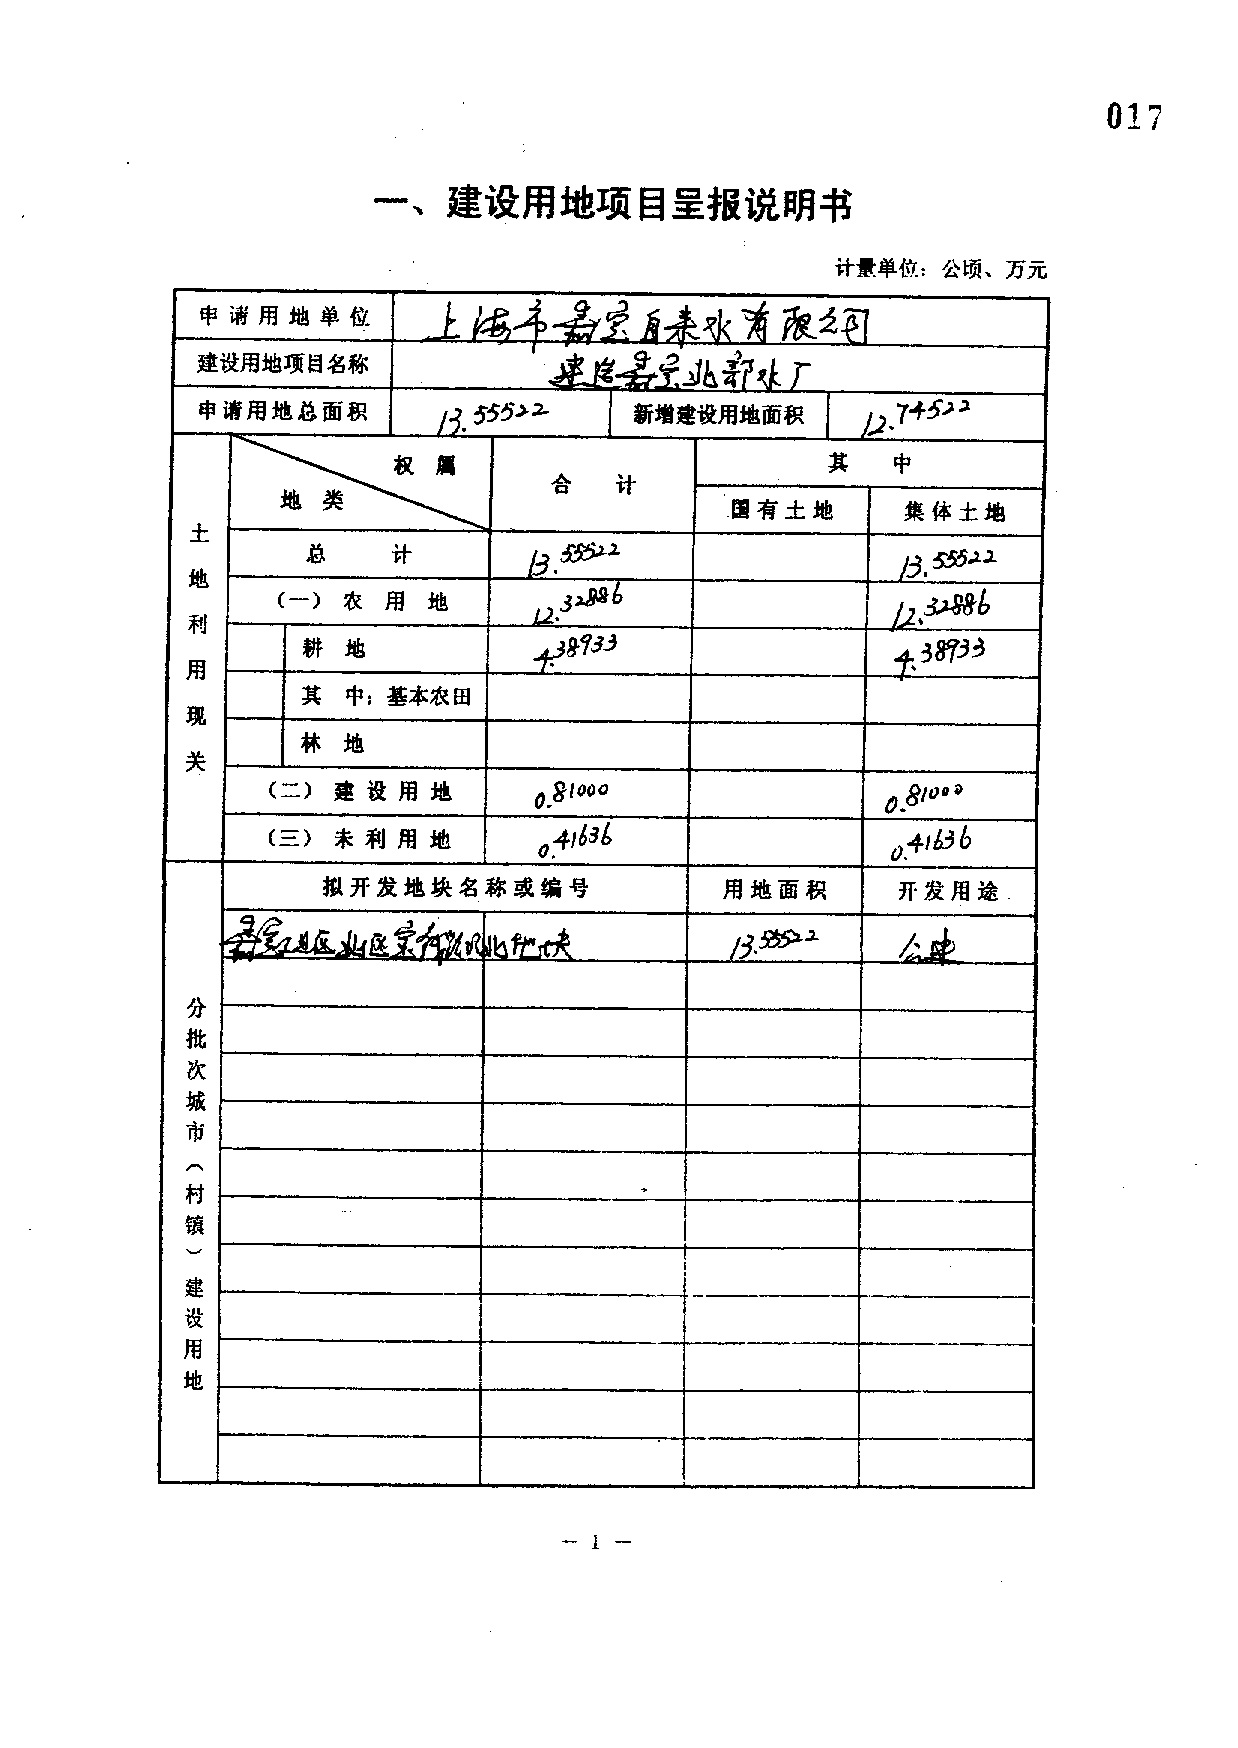 017
一、建设用地项目呈报说明书
计量单位：公顷、万元
申请用地单位 上海市嘉定自来水有限公司
建设用地项目名称 建造嘉定北部水厂
申请用地总面积 13.55522 新增建设用地面积 12.74522
权属 地类 合计 其中
国有土地 集体土地
土地利用现关
总计 13.55522 13.55522
（一）农用地 12.32886 12.32886
耕地 4.38933 4.38933
其中：基本农田
林地
（二）建设用地 0.81000 0.81000
（三）未利用地 0.41636 0.41636
拟开发地块名称或编号 用地面积 开发用途
嘉定工业区北区 北地块 13.55522 公建
分批次城市（村镇）建设用地
— 1 —